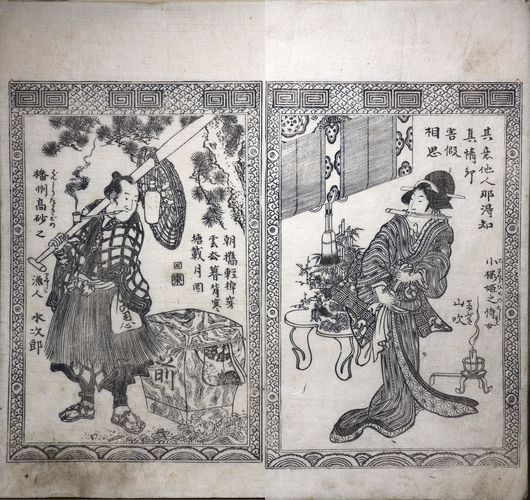 其意他人那得知
真情却
害假
相思
小桜姫之侍女
山吹
朝携軽棹穿
雲去暮背寒
塘載月回
播州高砂之
漁人 水次郎
前